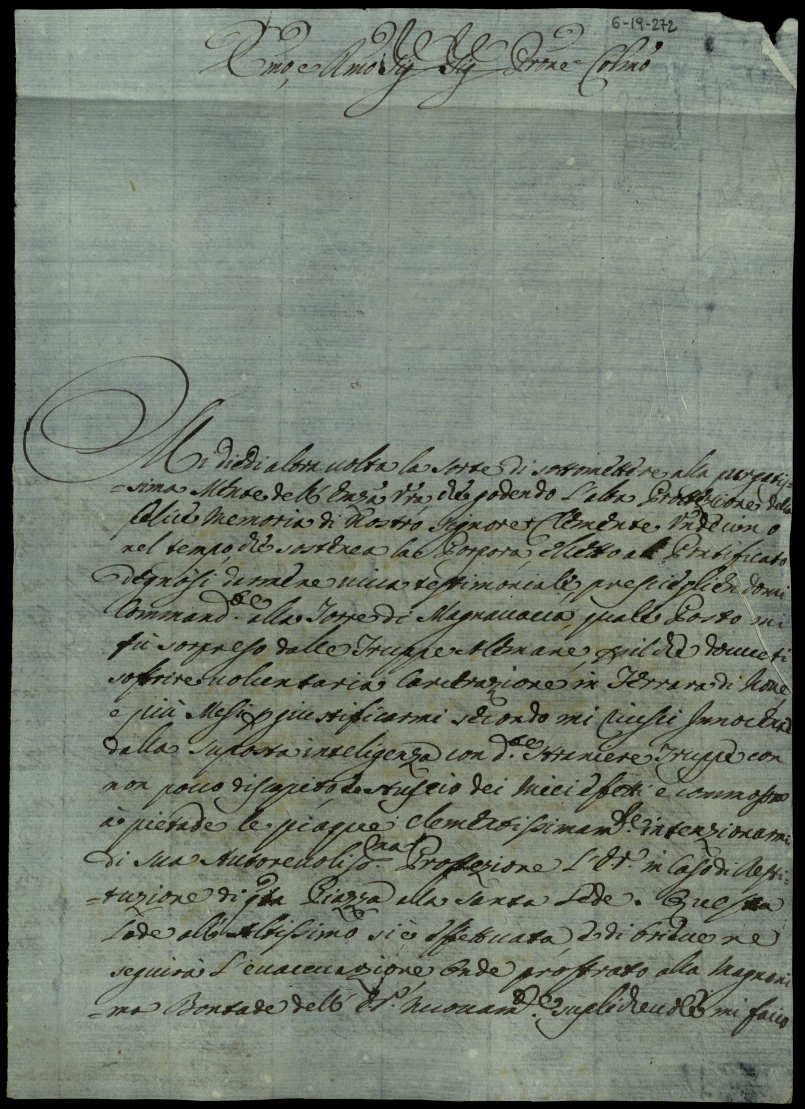 6-19-272
Emo, e Rmo Sig Sig Prone Colmo
Mi diedi altra volta la sorte di sottomettere alla purgatis=
=sima Mente dell' Emza Vra che godendo l'alta Protezione della
felice Memoria di Nostro Signore Clemente Undecimo
nel tempo che sostenea la Porpora, eletto al Pontificato
degnosi darmene viva testimonianza, presciegliendomi
Commandte alla Torre di Magnavacca, quale Posto mi
fù sorpreso dalle Truppe Alemane, per il che dovetti
soffrire volontaria Carcerazione in Ferrara di Nove
e più Mesi per giustificarmi secondo mi riuscì Innocente
dalla suposta inteligenza con de Straniere Truppe con
non poco discapito, e struscio dei miei effetti e commossa
à pietade le piaque Clementissimamte intenzionarmi
di sua Autorevolissma Protezione l'E.V. in Caso di Resti=
=tuzione di qta Piazza alla Santa Sede. Questa
Lode all' Altissimo si è effettuata, e di breve ne
seguirà l'evaccuazione, onde prostrato alla Magnani
=ma Bontade dell' E.V. nuovamte suplichevole mi faccio